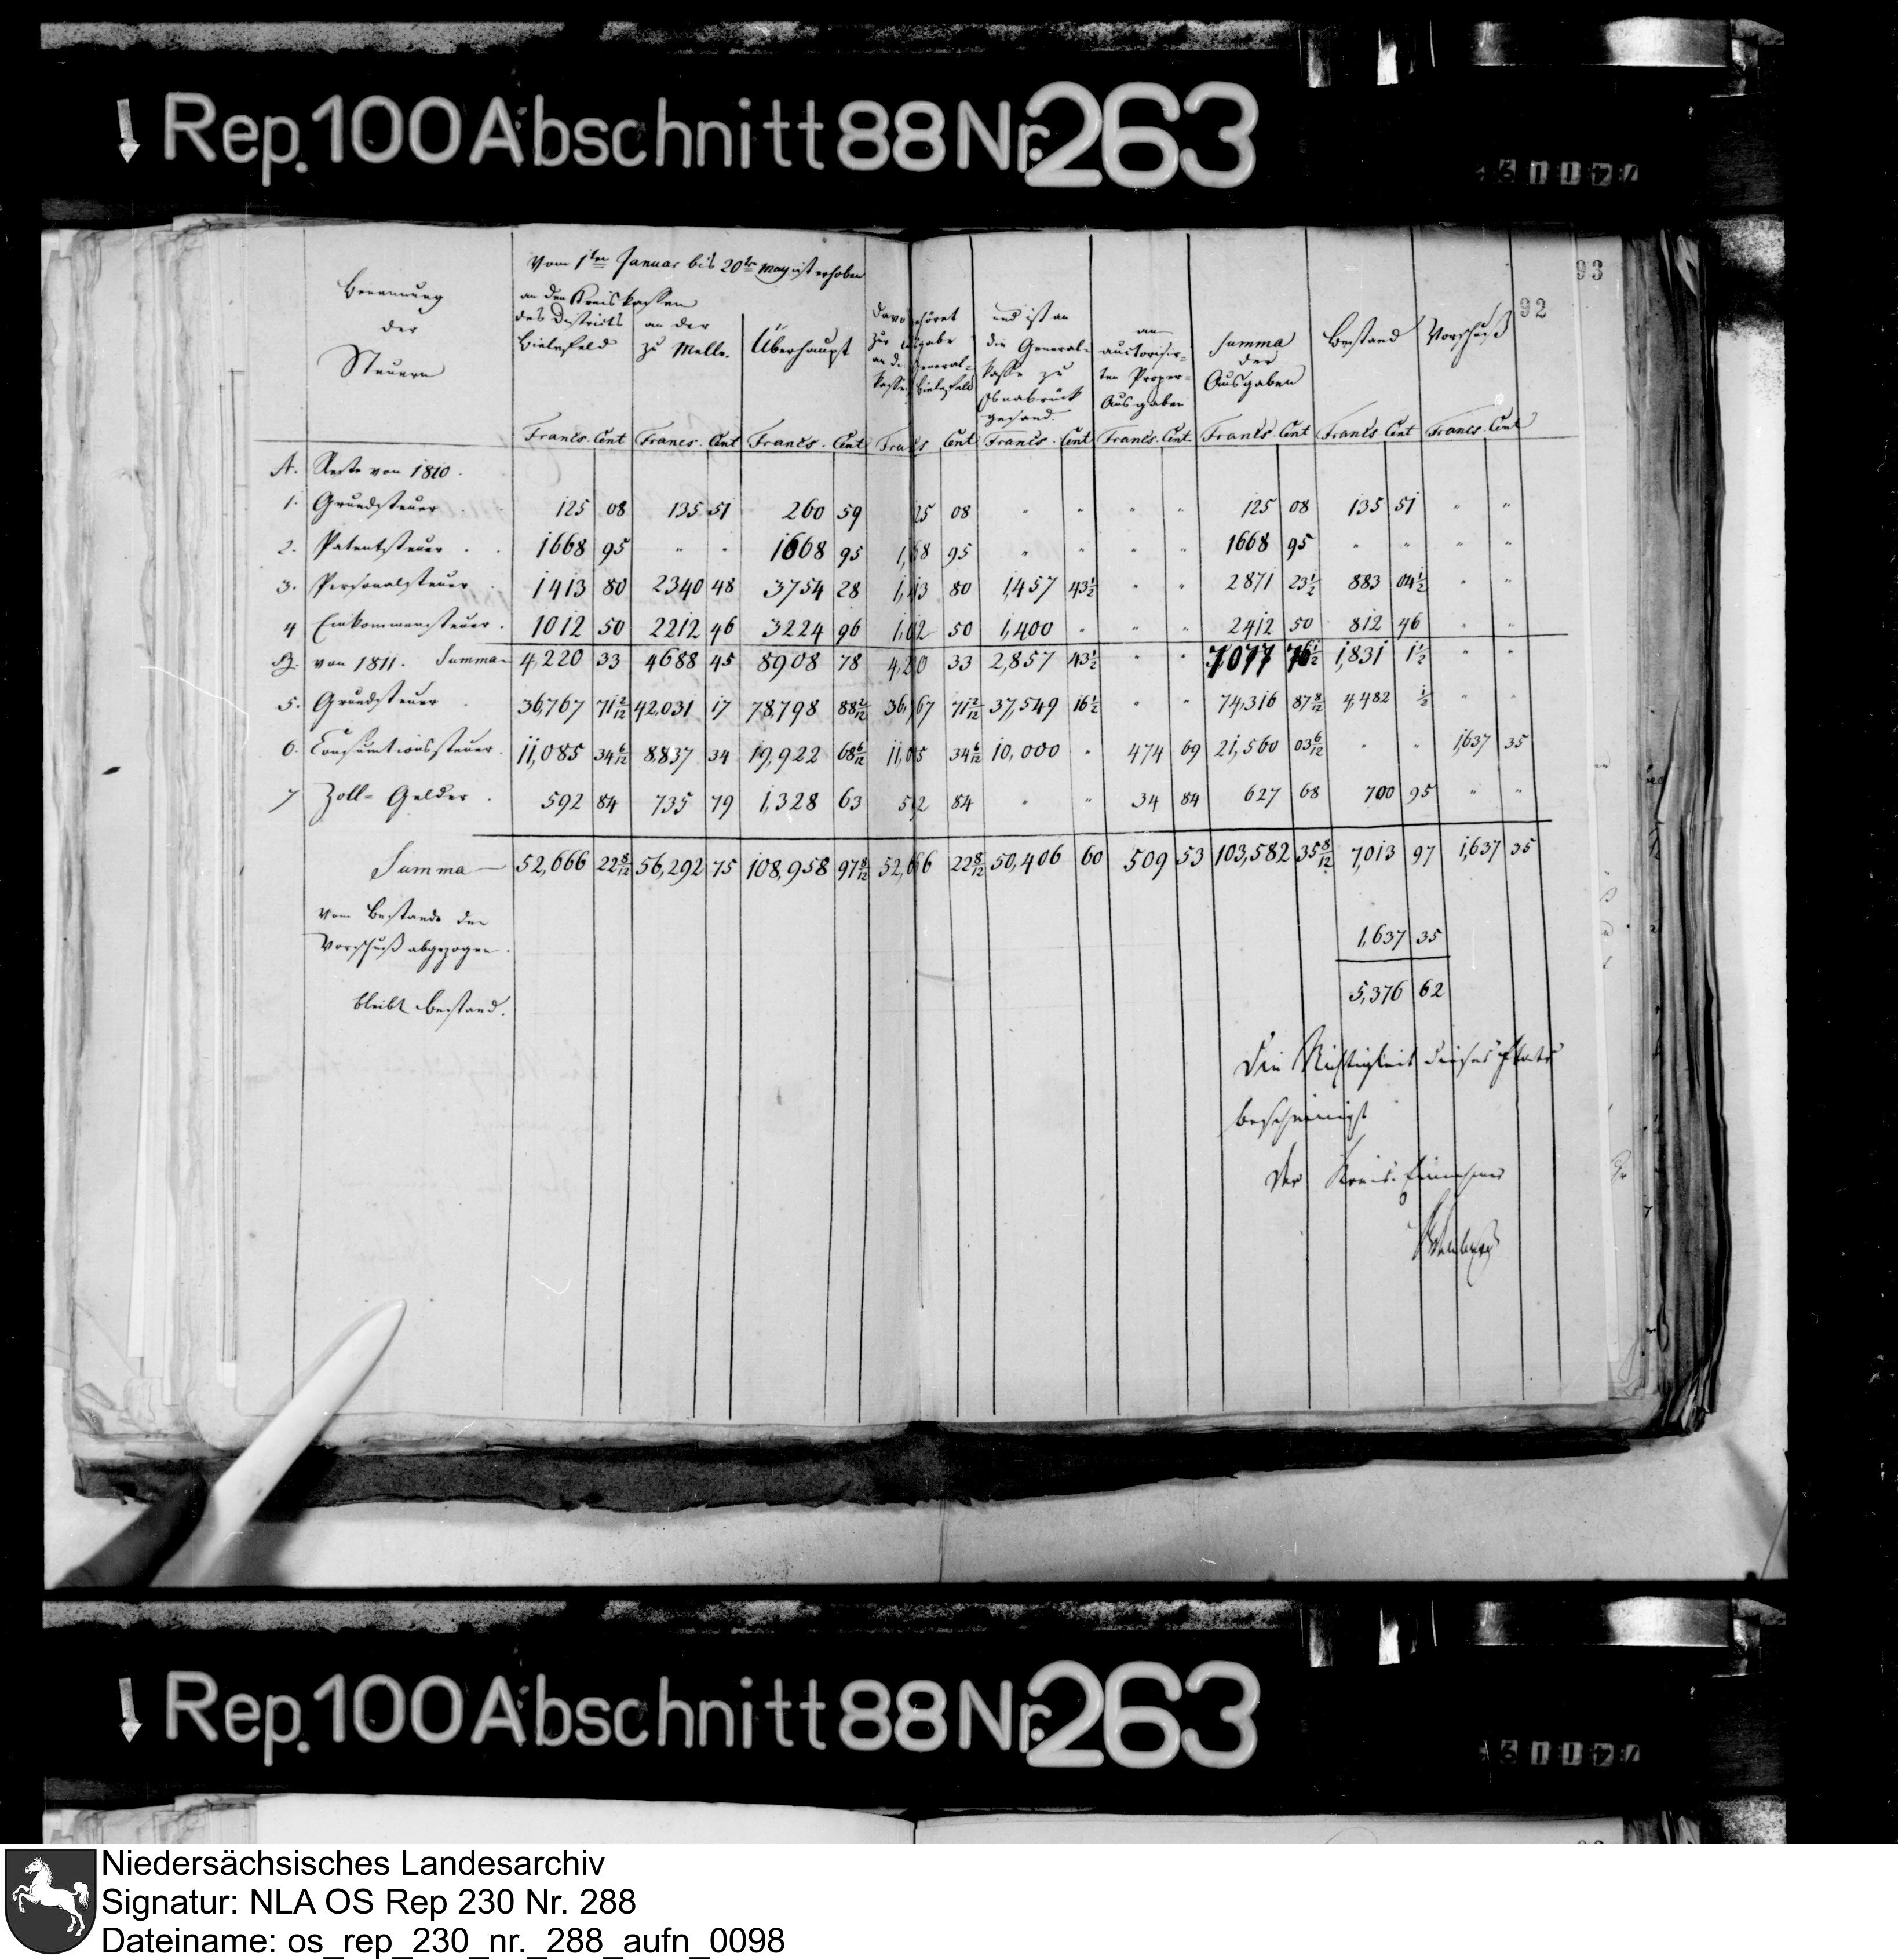 Rep. 100 Abschnitt 88 Nr. 263
93
92
Benennung
der
Steuern
Vom 1ten Januar bis 20ten May ist erhoben
an den Kreiskassen
des Districts
Bielefeld
an der
zu Melle.
Überhaupt
zur
an d. General-
Kasse Bielefeld
und ist an
die General-
Kasse zu
Osnabrück
gesand.
an
auctorisir-
ten Proper-
Ausgaben
Summa
der
Ausgaben
Bestand
Vorschuß
Francs. Cent Francs. Cent Francs. Cent Cent Francs. Cent Francs. Cent. Francs Cent Francs Cent Francs. Cent
A. Reste von 1810.
1. Grundsteuer 125 08 135 51 260 59 25 08 " " " " 125 08 135 51 " "
2. Patentsteuer . . 1668 95 " " 1668 95 1,68 95 " " " " 1668 95 " " " "
3. Personalsteuer . 1413 80 2340 48 3754 28 1,13 80 1,457 43½ " " 2871 23½ 883 04½ " "
4 Einkommensteuer . 1012 50 2212 46 3224 96 1,02 50 1,400 " " " 2412 50 812 46 " "
B. von 1811. Summa 4,220 33 4688 45 8908 78 4,20 33 2,857 43½ " " 7077 76½ 1,831 1½ " "
5. Grundsteuer . 36,767 71 2/12 42,031 17 78,798 88 2/12 36,67 71 2/12 37,549 16½ " " 74,316 87 8/12 4,482 ½ " "
6. Consumtionssteuer . 11,085 34 6/12 8,837 34 19,922 68 6/12 11,05 34 6/12 10,000 " 474 69 21,560 03 6/12 " " 1,637 35
7 Zoll- Gelder . 592 84 735 79 1,328 63 592 84 " " 34 84 627 68 700 95 " "
Summa 52,666 22 8/12 56,292 75 108,958 97 8/12 52,666 22 8/12 50,406 60 509 53 103,582 35 8/12 7,013 97 1,637 35
Vom Bestande den
Vorschuß abgezogen . 1,637 35
bleibt Bestand. 5,376 62
Die Richtigkeit dieses Etats
bescheinigt
Der Kreis-Einnehmer
Rep. 100 Abschnitt 88 Nr. 263
Niedersächsisches Landesarchiv
Signatur: NLA OS Rep 230 Nr. 288
Dateiname: os_rep_230_nr._288_aufn_0098